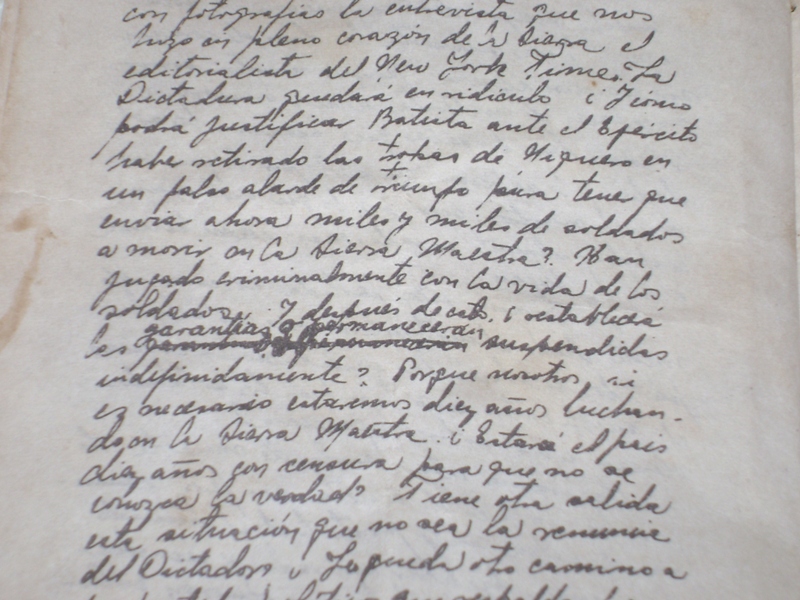 con fotografias la entrevista que nos
hizo en pleno corazón de la Sierra el
editorialista del New York Times. La
Dictadura quedará en ridiculo ¿Como
podrá justificar Batista ante el Ejército
haber retirado las tropas de Niquero en
un falso alarde de triunfo para tener que
enviar ahora miles y miles de soldados
a morir en la Sierra Maestra? Han
jugado criminalmente con la vida de los
soldados. Y después de esto, ¿restablecerá
garantias o permanecerán
las suspendidas
indefinidamente? Porque nosotros, si
es necesario estaremos diez años luchan-
do en la Sierra Maestra. ¿Estará el pais
diez años con censura para que no se
conozca la verdad? Tiene otra salida
esta situación que no sea la renuncia
del Dictador? ¿Le queda otro camino a